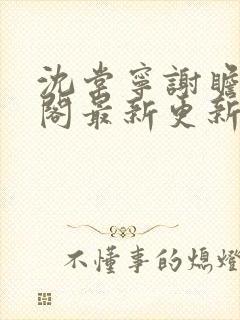 沈棠寧謝瞻
閣最新更新
不懂事的熄燈